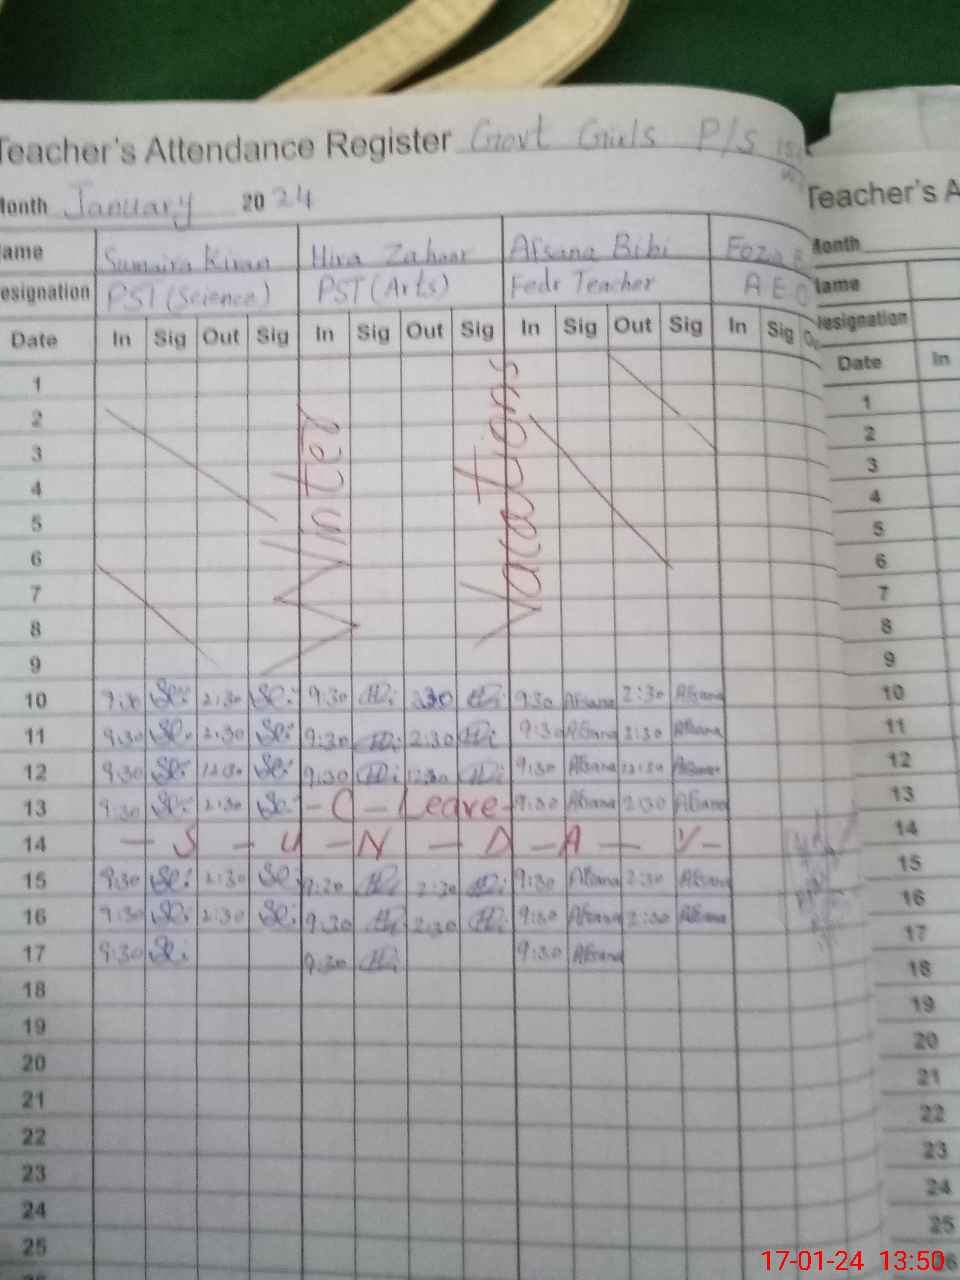 Teacher's Attendance Register Govt Girls P/S
Month January 2024
Name Sumaira Kiran Hira Zahoor Afsana Bibi Fozia
Designation PST (Science) PST (Arts) Fedr Teacher A E O
Date In Sig Out Sig In Sig Out Sig In Sig Out Sig In Sig
1
2
3
4
5
6
7
8
9
Winter Vacations
10 9:30 2:30 9:30 2:30 9:30 Afsana 2:30 Afsana
11 9:30 2:30 9:30 2:30 9:30 Afsana 2:30 Afsana
12 9:30 12:30 9:30 12:30 9:30 Afsana Afsana
13 9:30 2:30 - C - Leave - 9:30 Afsana 2:30 Afsana
14 - S - U - N - D - A - Y -
15 9:30 2:30 2:30 9:30 Afsana 2:30 Afsana
16 9:30 2:30 9:30 2:30 9:30 Afsana 2:30 Afsana
17 9:30 9:30 9:30 Afsana
18
19
20
21
22
23
24
25
Teacher's A
Month
Name
Designation
Date In
1
2
3
4
5
6
7
8
9
10
11
12
13
14
15
16
17
18
19
20
21
22
23
24
25
17-01-24 13:50